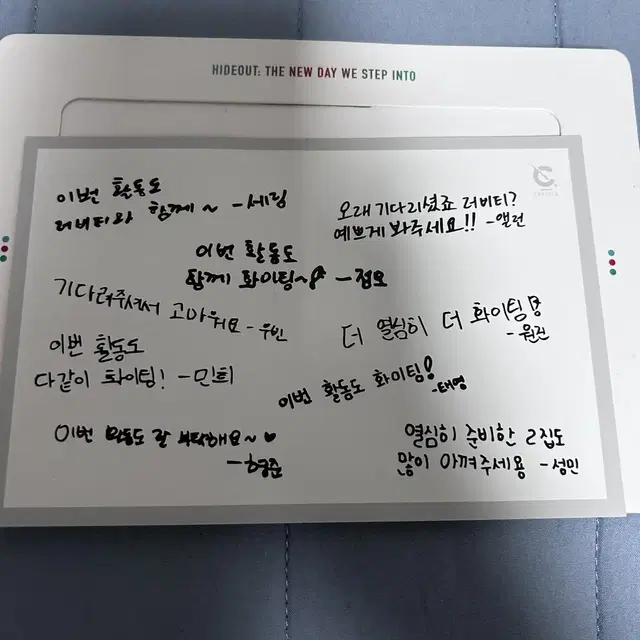 HIDEOUT: THE NEW DAY WE STEP INTO
이번 활동도
러비티와 함께~ -세림
오래 기다리셨죠 러비티?
예쁘게 봐주세요!! -앨런
이번 활동도
함께 화이팅~ -정모
기다려주셔서 고마워요 -우빈
더 열심히 더 화이팅
-원진
이번 활동도
다같이 화이팅! -민희
이번 활동도 화이팅!
-태영
이번 활동도 잘 부탁해요~♥
-형준
열심히 준비한 2집도
많이 아껴주세용 -성민